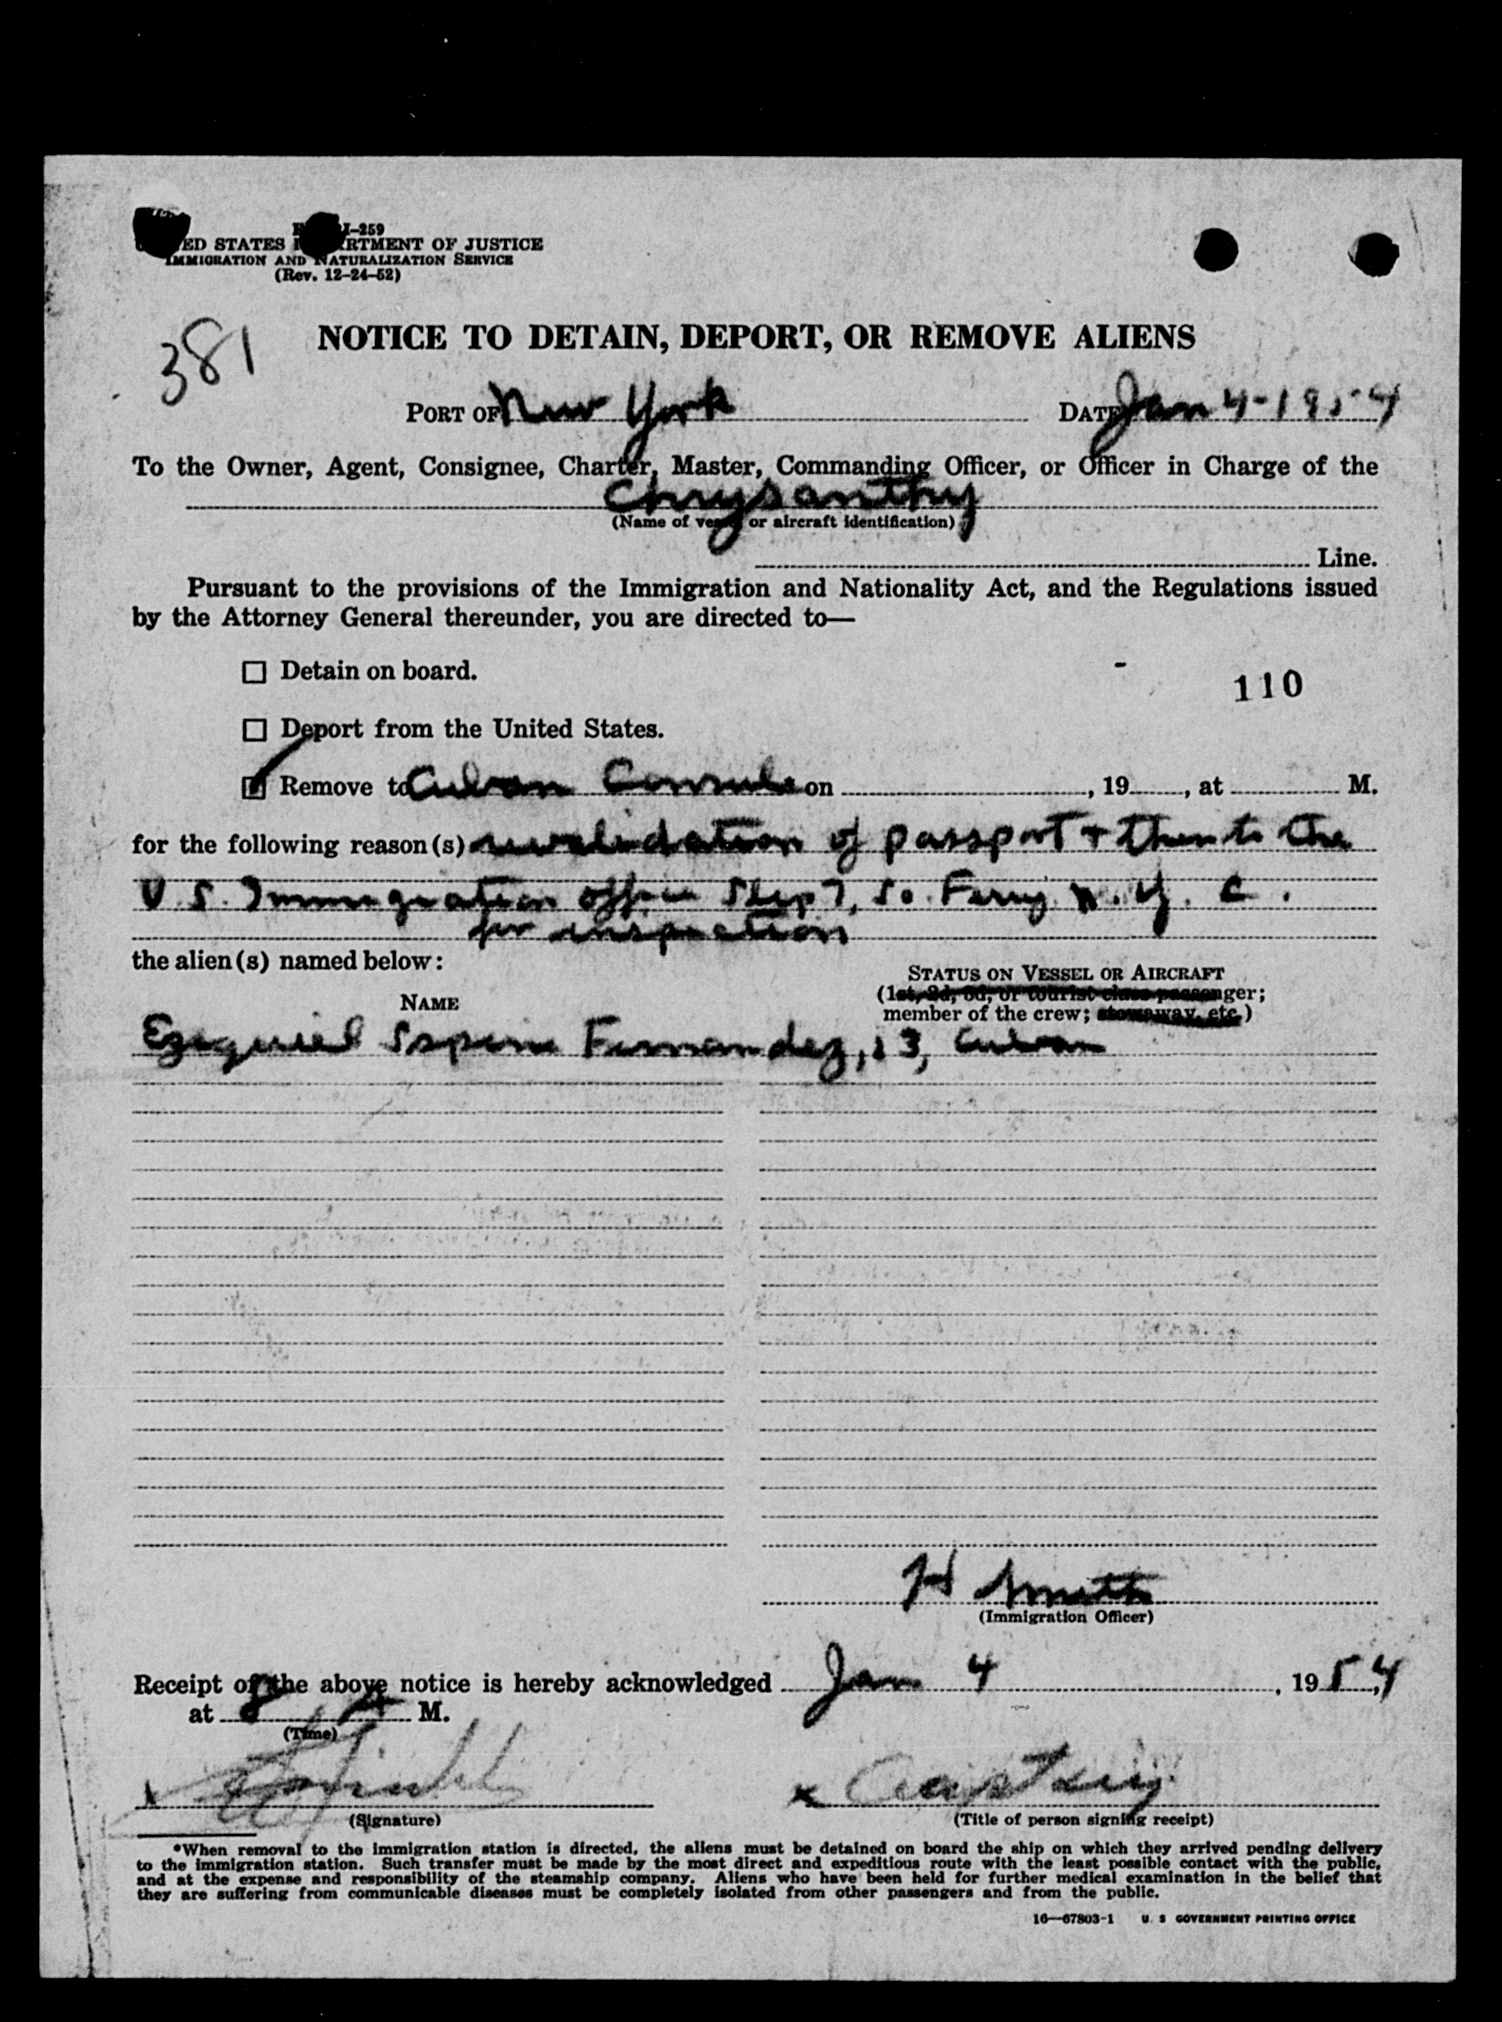 I-259
ED STATES RTMENT OF JUSTICE
IMMIGRATION AND NATURALIZATION SERVICE
(Rev. 12-24-52)
381
NOTICE TO DETAIN, DEPORT, OR REMOVE ALIENS
PORT OF New York DATE Jan 4-1954
To the Owner, Agent, Consignee, Charter, Master, Commanding Officer, or Officer in Charge of the
Chrysanthy
(Name of vessel or aircraft identification)
Line.
Pursuant to the provisions of the Immigration and Nationality Act, and the Regulations issued
by the Attorney General thereunder, you are directed to—
☐ Detain on board.
110
☐ Deport from the United States.
Remove to Cuban Consul on , 19 , at M.
for the following reason(s) revalidation of passport + then to the
U S. Immigration office Slip 7, So. Ferry N. Y. C.
for inspection
the alien(s) named below:
STATUS ON VESSEL OR AIRCRAFT
(1st, 2d, 3d, or tourist class passenger;
NAME
member of the crew; stowaway, etc.)
Ezequiel Fernandez, 23, Cuban
H Smith
(Immigration Officer)
Receipt of the above notice is hereby acknowledged Jan 4 , 1954,
at 8 A M.
(Time)
x x
(Signature) (Title of person signing receipt)
*When removal to the immigration station is directed, the aliens must be detained on board the ship on which they arrived pending delivery
to the immigration station. Such transfer must be made by the most direct and expeditious route with the least possible contact with the public,
and at the expense and responsibility of the steamship company. Aliens who have been held for further medical examination in the belief that
they are suffering from communicable diseases must be completely isolated from other passengers and from the public.
16—67803-1 U. S GOVERNMENT PRINTING OFFICE